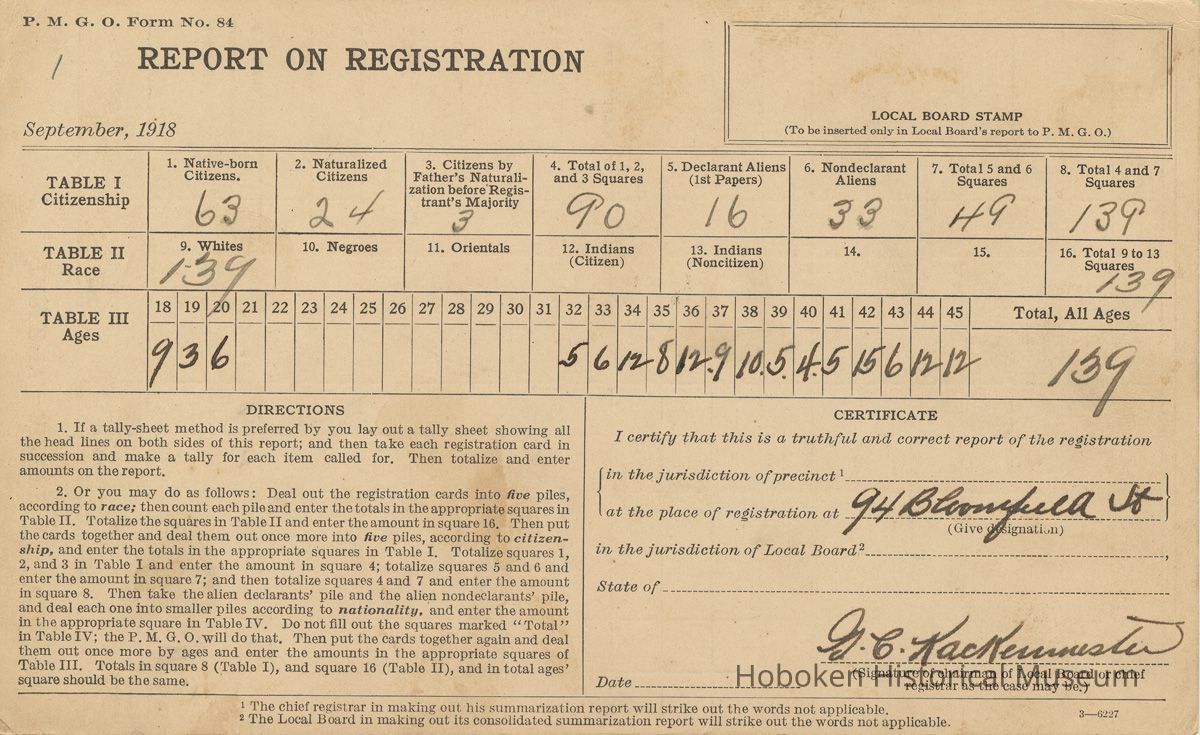 P. M. G. O. Form No. 84
1
REPORT ON REGISTRATION
September, 1918
LOCAL BOARD STAMP
(To be inserted only in Local Board's report to P. M. G. O.)
TABLE I
Citizenship
1. Native-born
Citizens.
63
2. Naturalized
Citizens
24
3. Citizens by
Father's Naturali-
zation before Regis-
trant's Majority
3
4. Total of 1, 2,
and 3 Squares
90
5. Declarant Aliens
(1st Papers)
16
6. Nondeclarant
Aliens
33
7. Total 5 and 6
Squares
49
8. Total 4 and 7
Squares
139
TABLE II
Race
9. Whites
139
10. Negroes
11. Orientals
12. Indians
(Citizen)
13. Indians
(Noncitizen)
14.
15.
16. Total 9 to 13
Squares
139
TABLE III
Ages
18 19 20 21 22 23 24 25 26 27 28 29 30 31 32 33 34 35 36 37 38 39 40 41 42 43 44 45 Total, All Ages
9 3 6 5 6 12 8 12 9 10 5 4 5 15 6 12 12 139
DIRECTIONS
1. If a tally-sheet method is preferred by you lay out a tally sheet showing all
the head lines on both sides of this report; and then take each registration card in
succession and make a tally for each item called for. Then totalize and enter
amounts on the report.
2. Or you may do as follows: Deal out the registration cards into five piles,
according to race; then count each pile and enter the totals in the appropriate squares in
Table II. Totalize the squares in Table II and enter the amount in square 16. Then put
the cards together and deal them out once more into five piles, according to citizen-
ship, and enter the totals in the appropriate squares in Table I. Totalize squares 1,
2, and 3 in Table I and enter the amount in square 4; totalize squares 5 and 6 and
enter the amount in square 7; and then totalize squares 4 and 7 and enter the amount
in square 8. Then take the alien declarants' pile and the alien nondeclarants' pile,
and deal each one into smaller piles according to nationality, and enter the amount
in the appropriate square in Table IV. Do not fill out the squares marked "Total"
in Table IV; the P. M. G. O. will do that. Then put the cards together again and deal
them out once more by ages and enter the amounts in the appropriate squares of
Table III. Totals in square 8 (Table I), and square 16 (Table II), and in total ages'
square should be the same.
CERTIFICATE
I certify that this is a truthful and correct report of the registration
in the jurisdiction of precinct¹
at the place of registration at 94 Bloomfield St
(Give designation)
in the jurisdiction of Local Board²,
State of
G. C. Kackenmester
Date
(Signature of chairman of Local Board or chief
registrar as the case may be.)
Hoboken Historical Museum
¹ The chief registrar in making out his summarization report will strike out the words not applicable.
² The Local Board in making out its consolidated summarization report will strike out the words not applicable.
3—6227